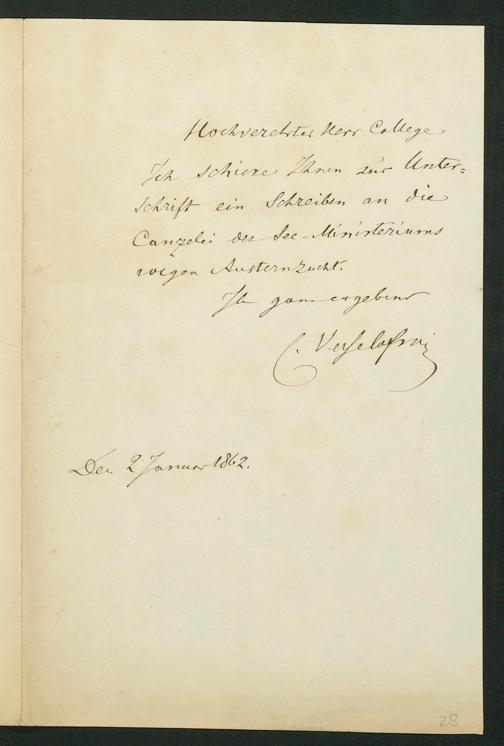 Hochverehrter Herr College
Ich schicke Ihnen zur Unter=
schrift ein Schreiben an die
Canzelei des See-Ministeriums
wegen Austernzucht.
Ihr ganz ergebener
C. Vesselofski
Den 2 Januar 1862.
28